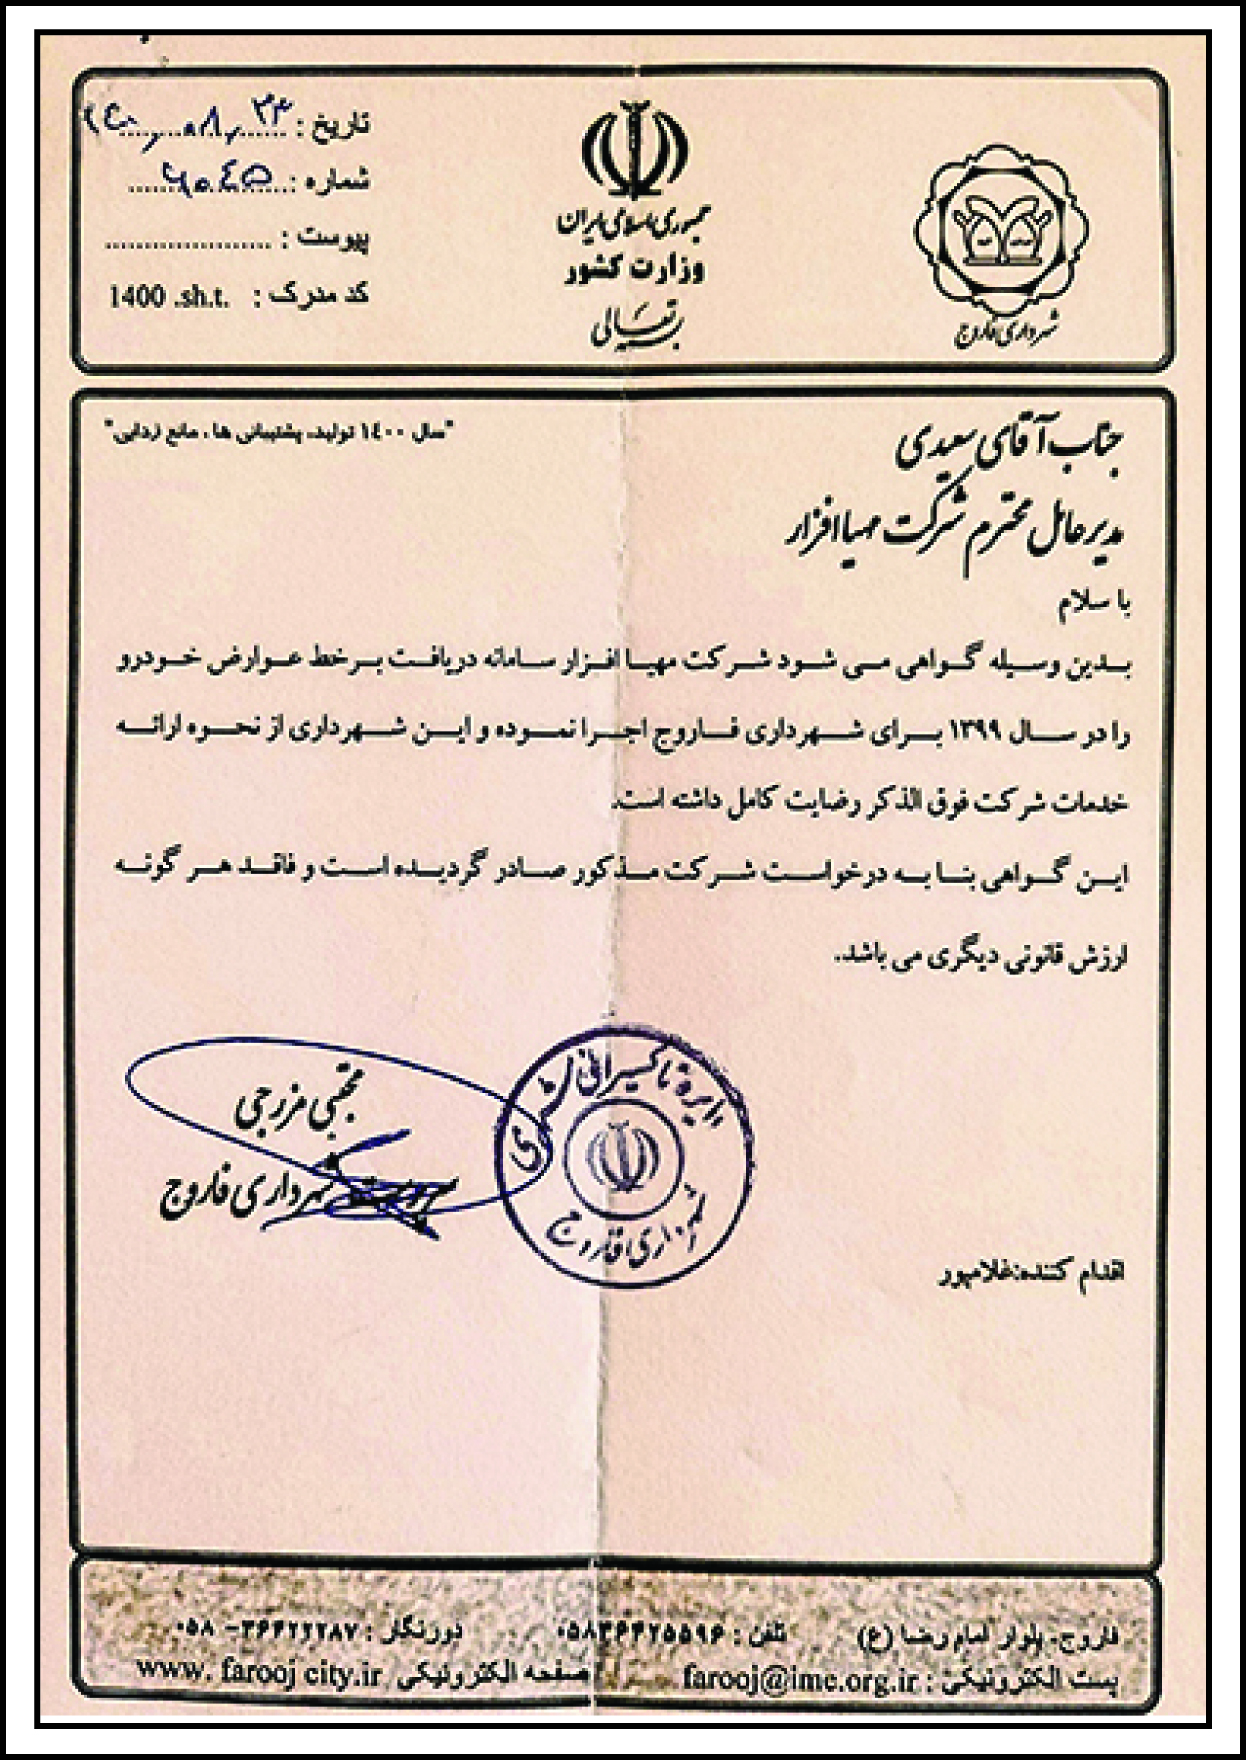 تاریخ : ۱۴۰۰/۰۸/۲۳
شماره : ۶۰۴۵
پیوست :
کد مدرک : 1400 .sh.t.
جمهوری اسلامی ایران
وزارت کشور
بسمه تعالی
شهرداری فاروج
"سال ۱٤۰۰ تولید، پشتیبانی ها ، مانع زدایی"
جناب آقای سعیدی
مدیرعامل محترم شرکت مهیا افزار
با سلام
بدین وسیله گواهی می شود شرکت مهیا افزار سامانه دریافت برخط عوارض خودرو
را در سال ۱۳۹۹ برای شهرداری فاروج اجرا نموده و این شهرداری از نحوه ارائه
خدمات شرکت فوق الذکر رضایت کامل داشته است.
این گواهی بنا به درخواست شرکت مذکور صادر گردیده است و فاقد هر گونه
ارزش قانونی دیگری می باشد.
مجتبی مزرجی
شهرداری فاروج
دایره تاکسیرانی شهری
شهرداری فاروج
اقدام کننده:غلامپور
فاروج، بلوار امام رضا (ع) تلفن : ۰۵۸۳۶۴۲۵۵۹۶ دورنگار : ۳۶۴۲۲۲۸۷– ۰۵۸
پست الکترونیکی : farooj@imc.org.ir صفحه الکترونیکی www. farooj city.ir